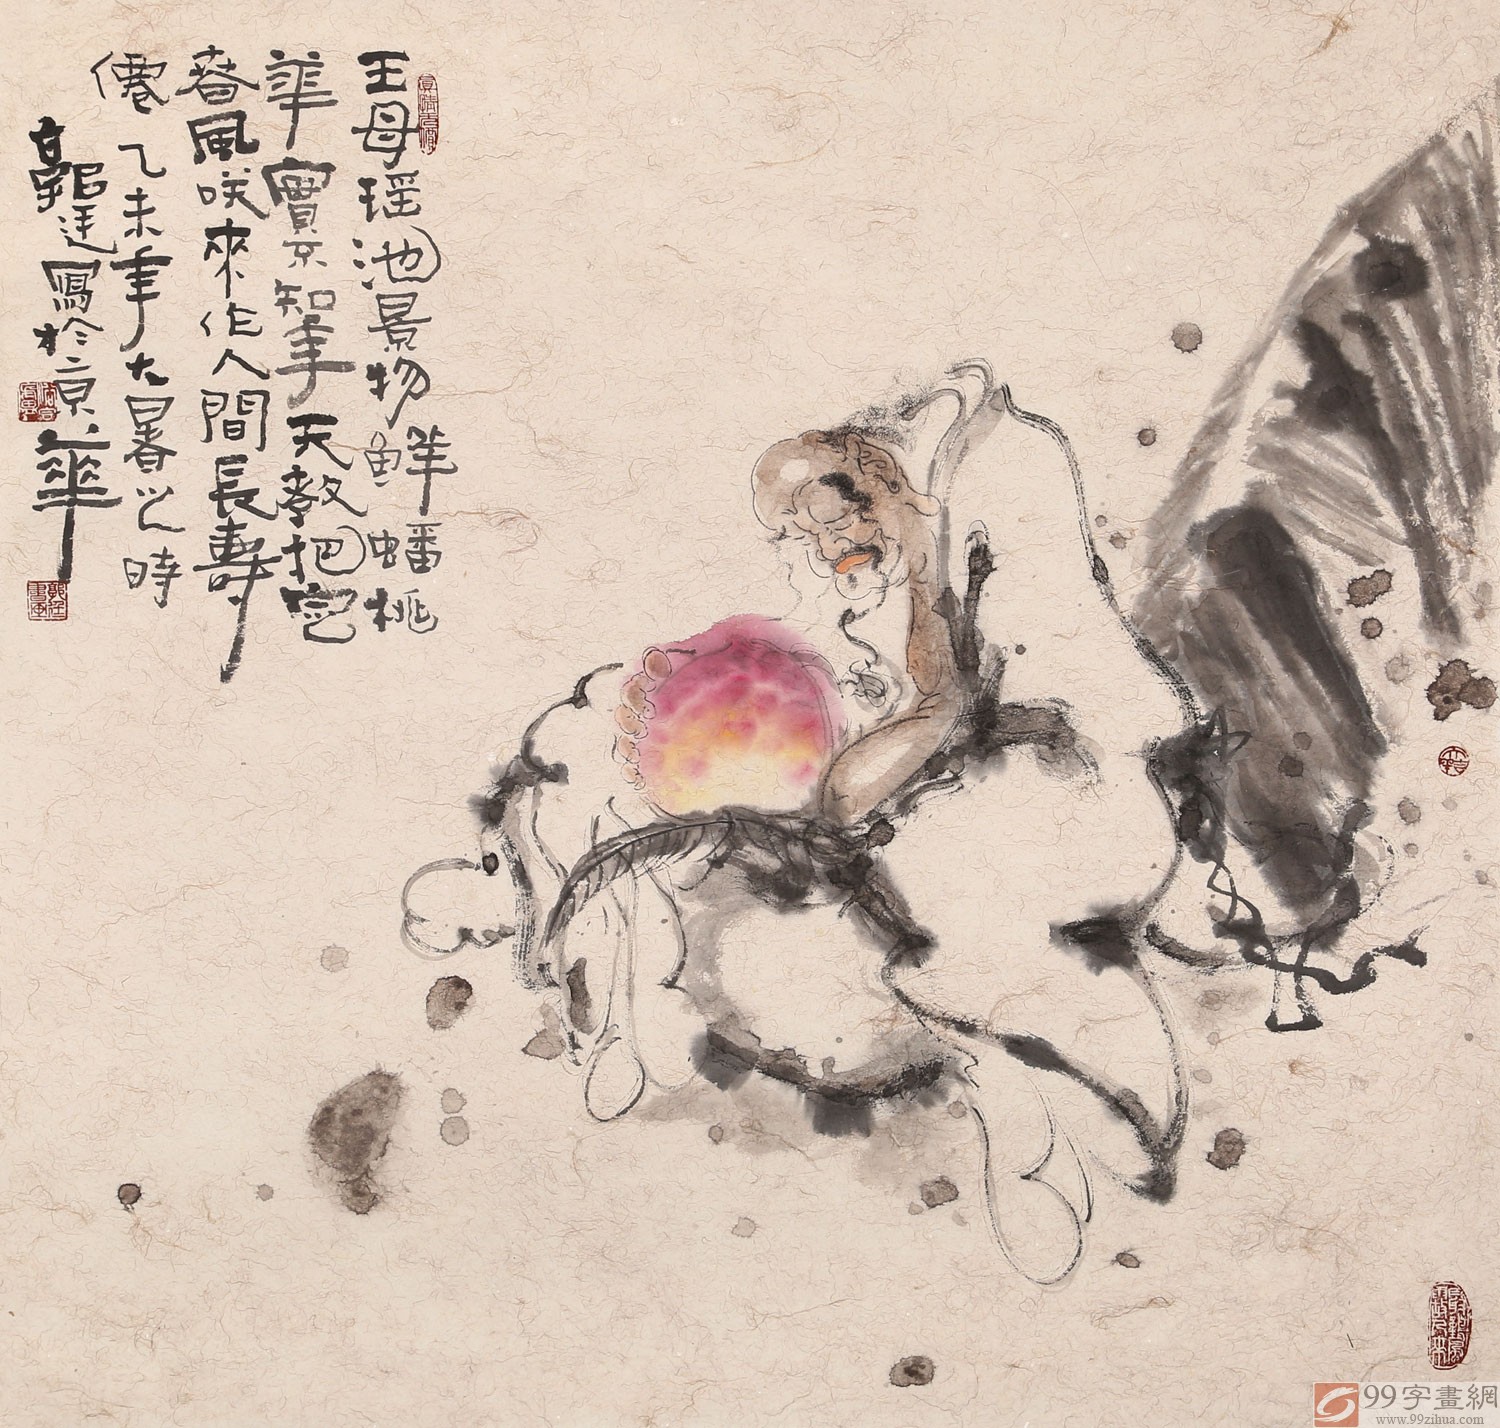 王母瑶池景物鲜蟠桃
華實不知年天教把定
春風咲來作人間長壽
僊 乙未年大暑之時
郭廷寫於京華
99字畫網
www.99zihua.com